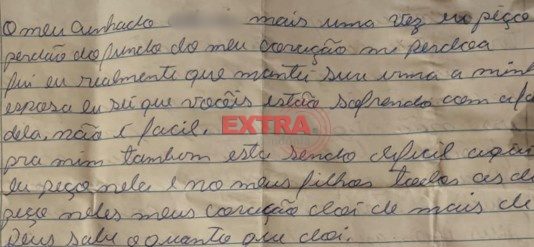 O meu cunhado mais uma vez eu peço
perdão do fundo do meu coração mi perdoa
fui eu realmente que mantei sua irma a minh
esposa eu sei que vocêis estão sofrendo com a fa
dela, não é facil.
EXTRA
pra mim tambom esta sendo dificil aqui
eu peço nela e no meus filhos todos os di
peço neles meus coração doi de mais de
Deus sabe o quanto que doi.